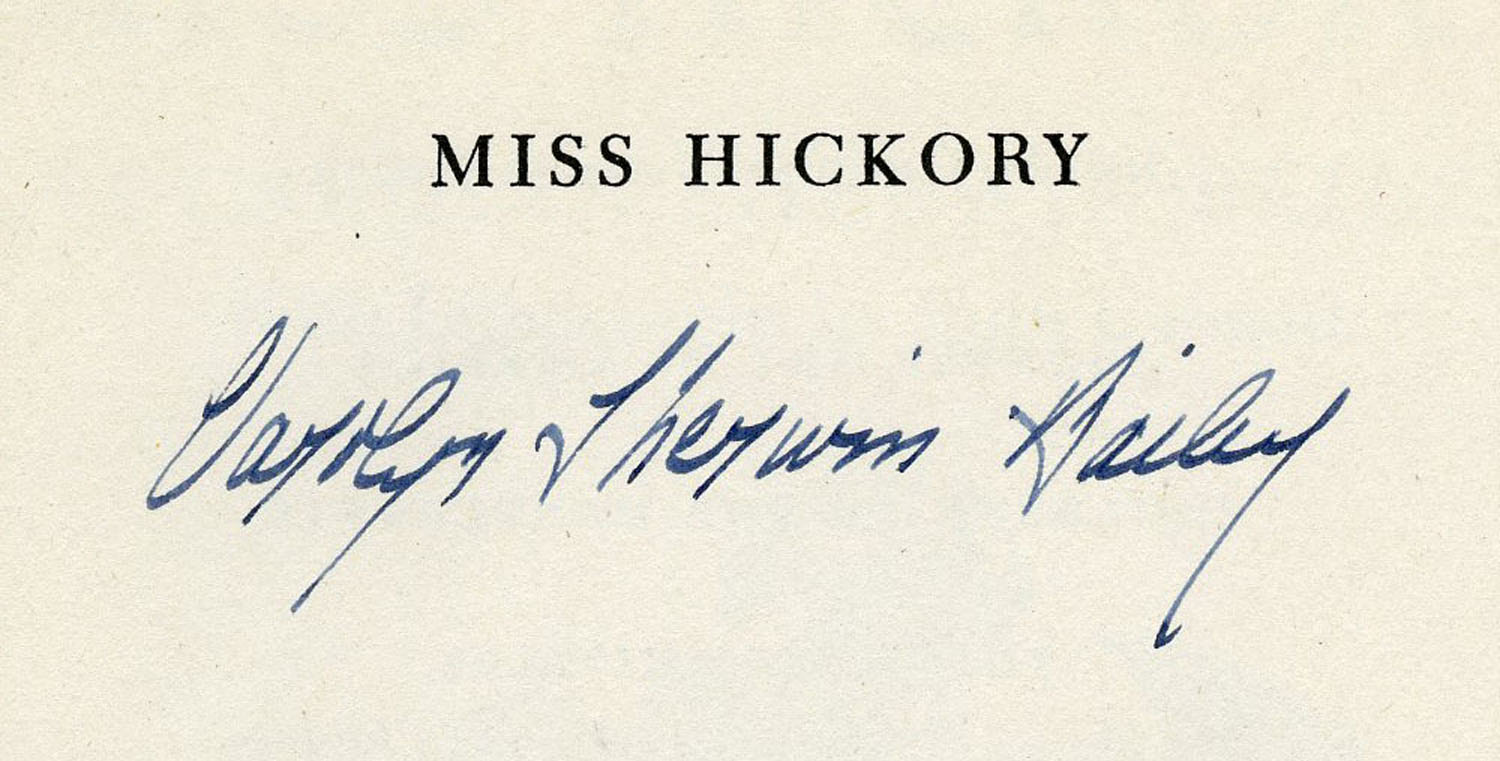 MISS HICKORY
Carolyn Sherwin Bailey